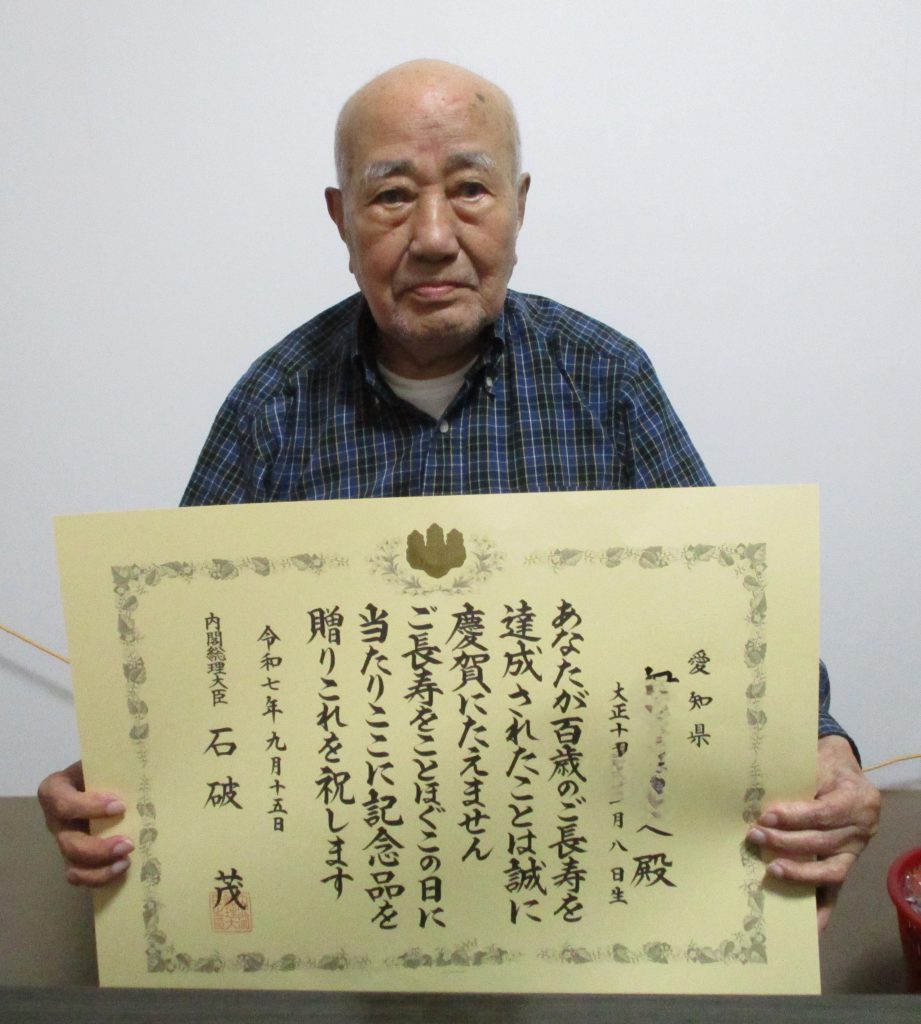 愛知県
殿
大正十 月八日生
あなたが百歳のご長寿を
達成されたことは誠に
慶賀にたえません
ご長寿をことほぐこの日に
当たりここに記念品を
贈りこれを祝します
令和七年九月十五日
内閣総理大臣 石破 茂